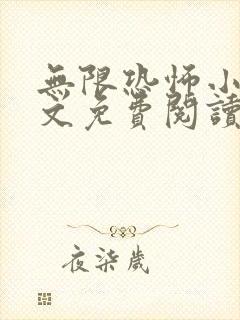 無限恐怖小
文免費閱讀
夜柒歲